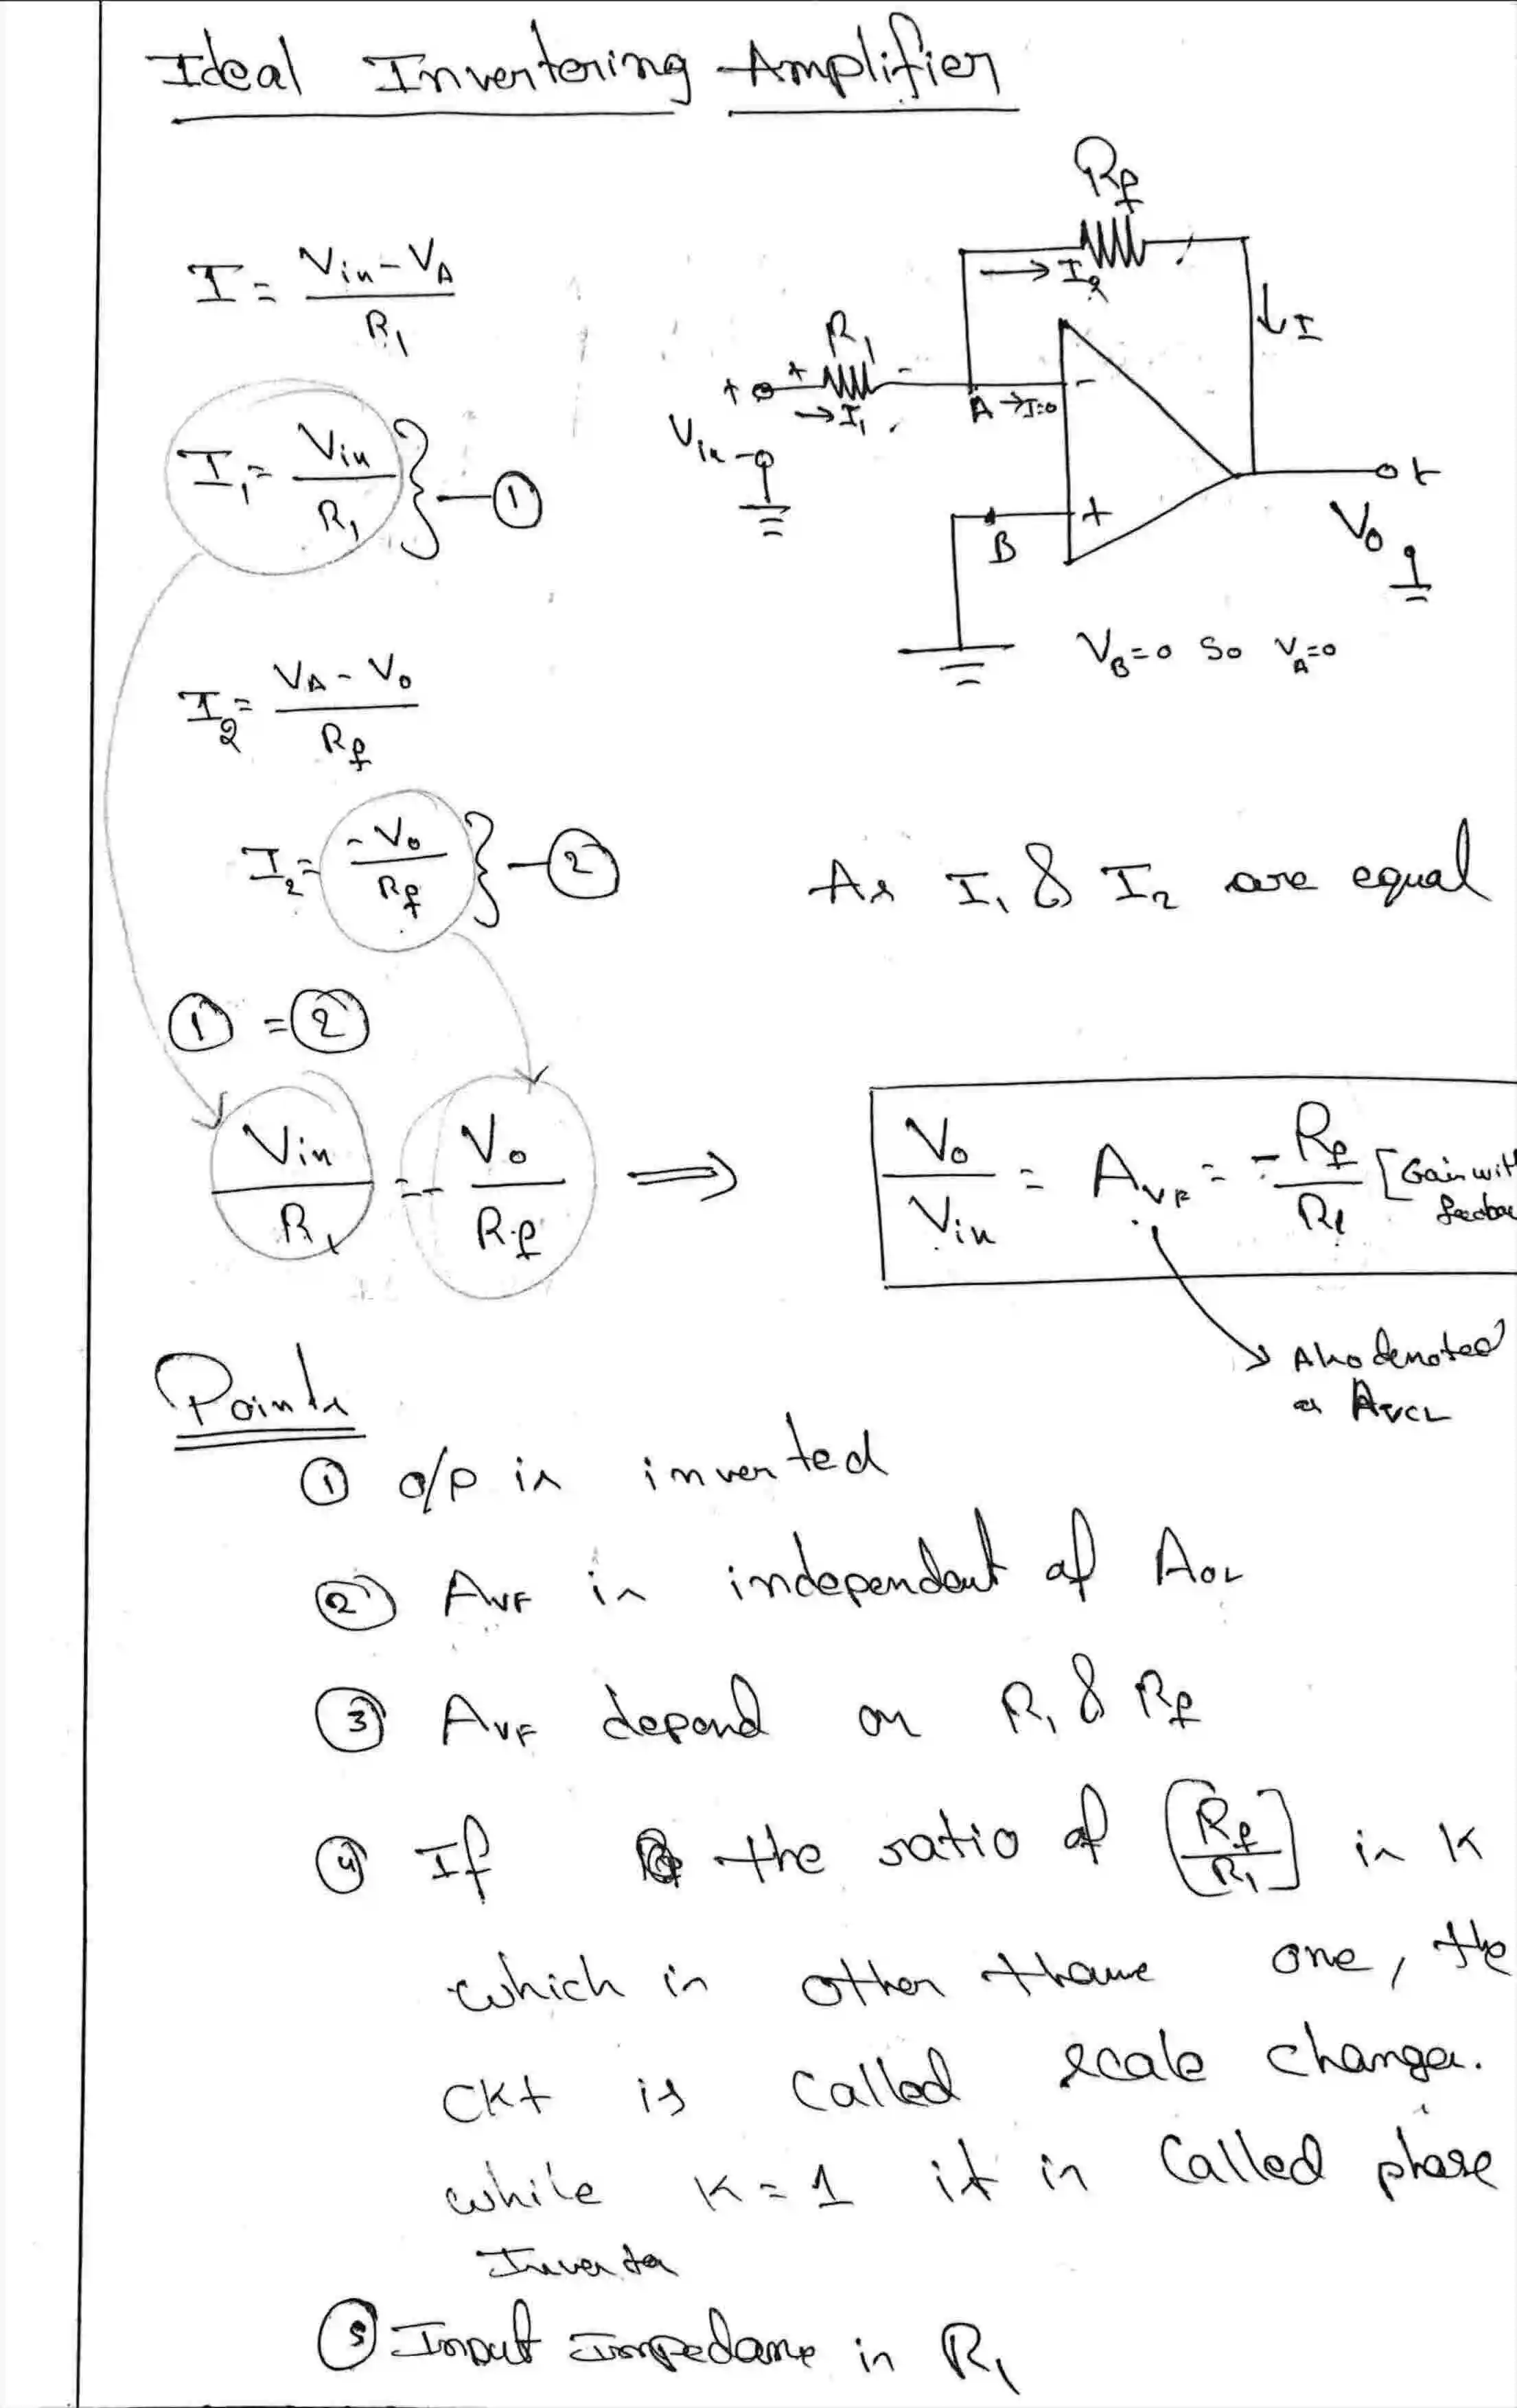 Ideal Invertering Amplifier
Rf
I = Vin - VA / R1
→ I2
↓ I
R1
+ + -
→ I1
A → I=0
-
Vin -
I1 = Vin / R1 } - ①
+
B
+
Vo
VB = 0 So VA = 0
I2 = VA - Vo / Rf
I2 = -Vo / Rf } - ②
As I1 & I2 are equal
① = ②
Vin / R1 = - Vo / Rf ⟹ Vo / Vin = AVF = - Rf / R1 [Gain with
feedbac
Also denoted
as AVCL
Points
① o/p is inverted
② AVF is independent of AOL
③ AVF depend on R1 & Rf
④ If the ratio of [Rf / R1] is K
which is other than one, the
ckt is called scale changer.
while K = 1 it is called phase
Inverter
⑤ Input Impedance is R1